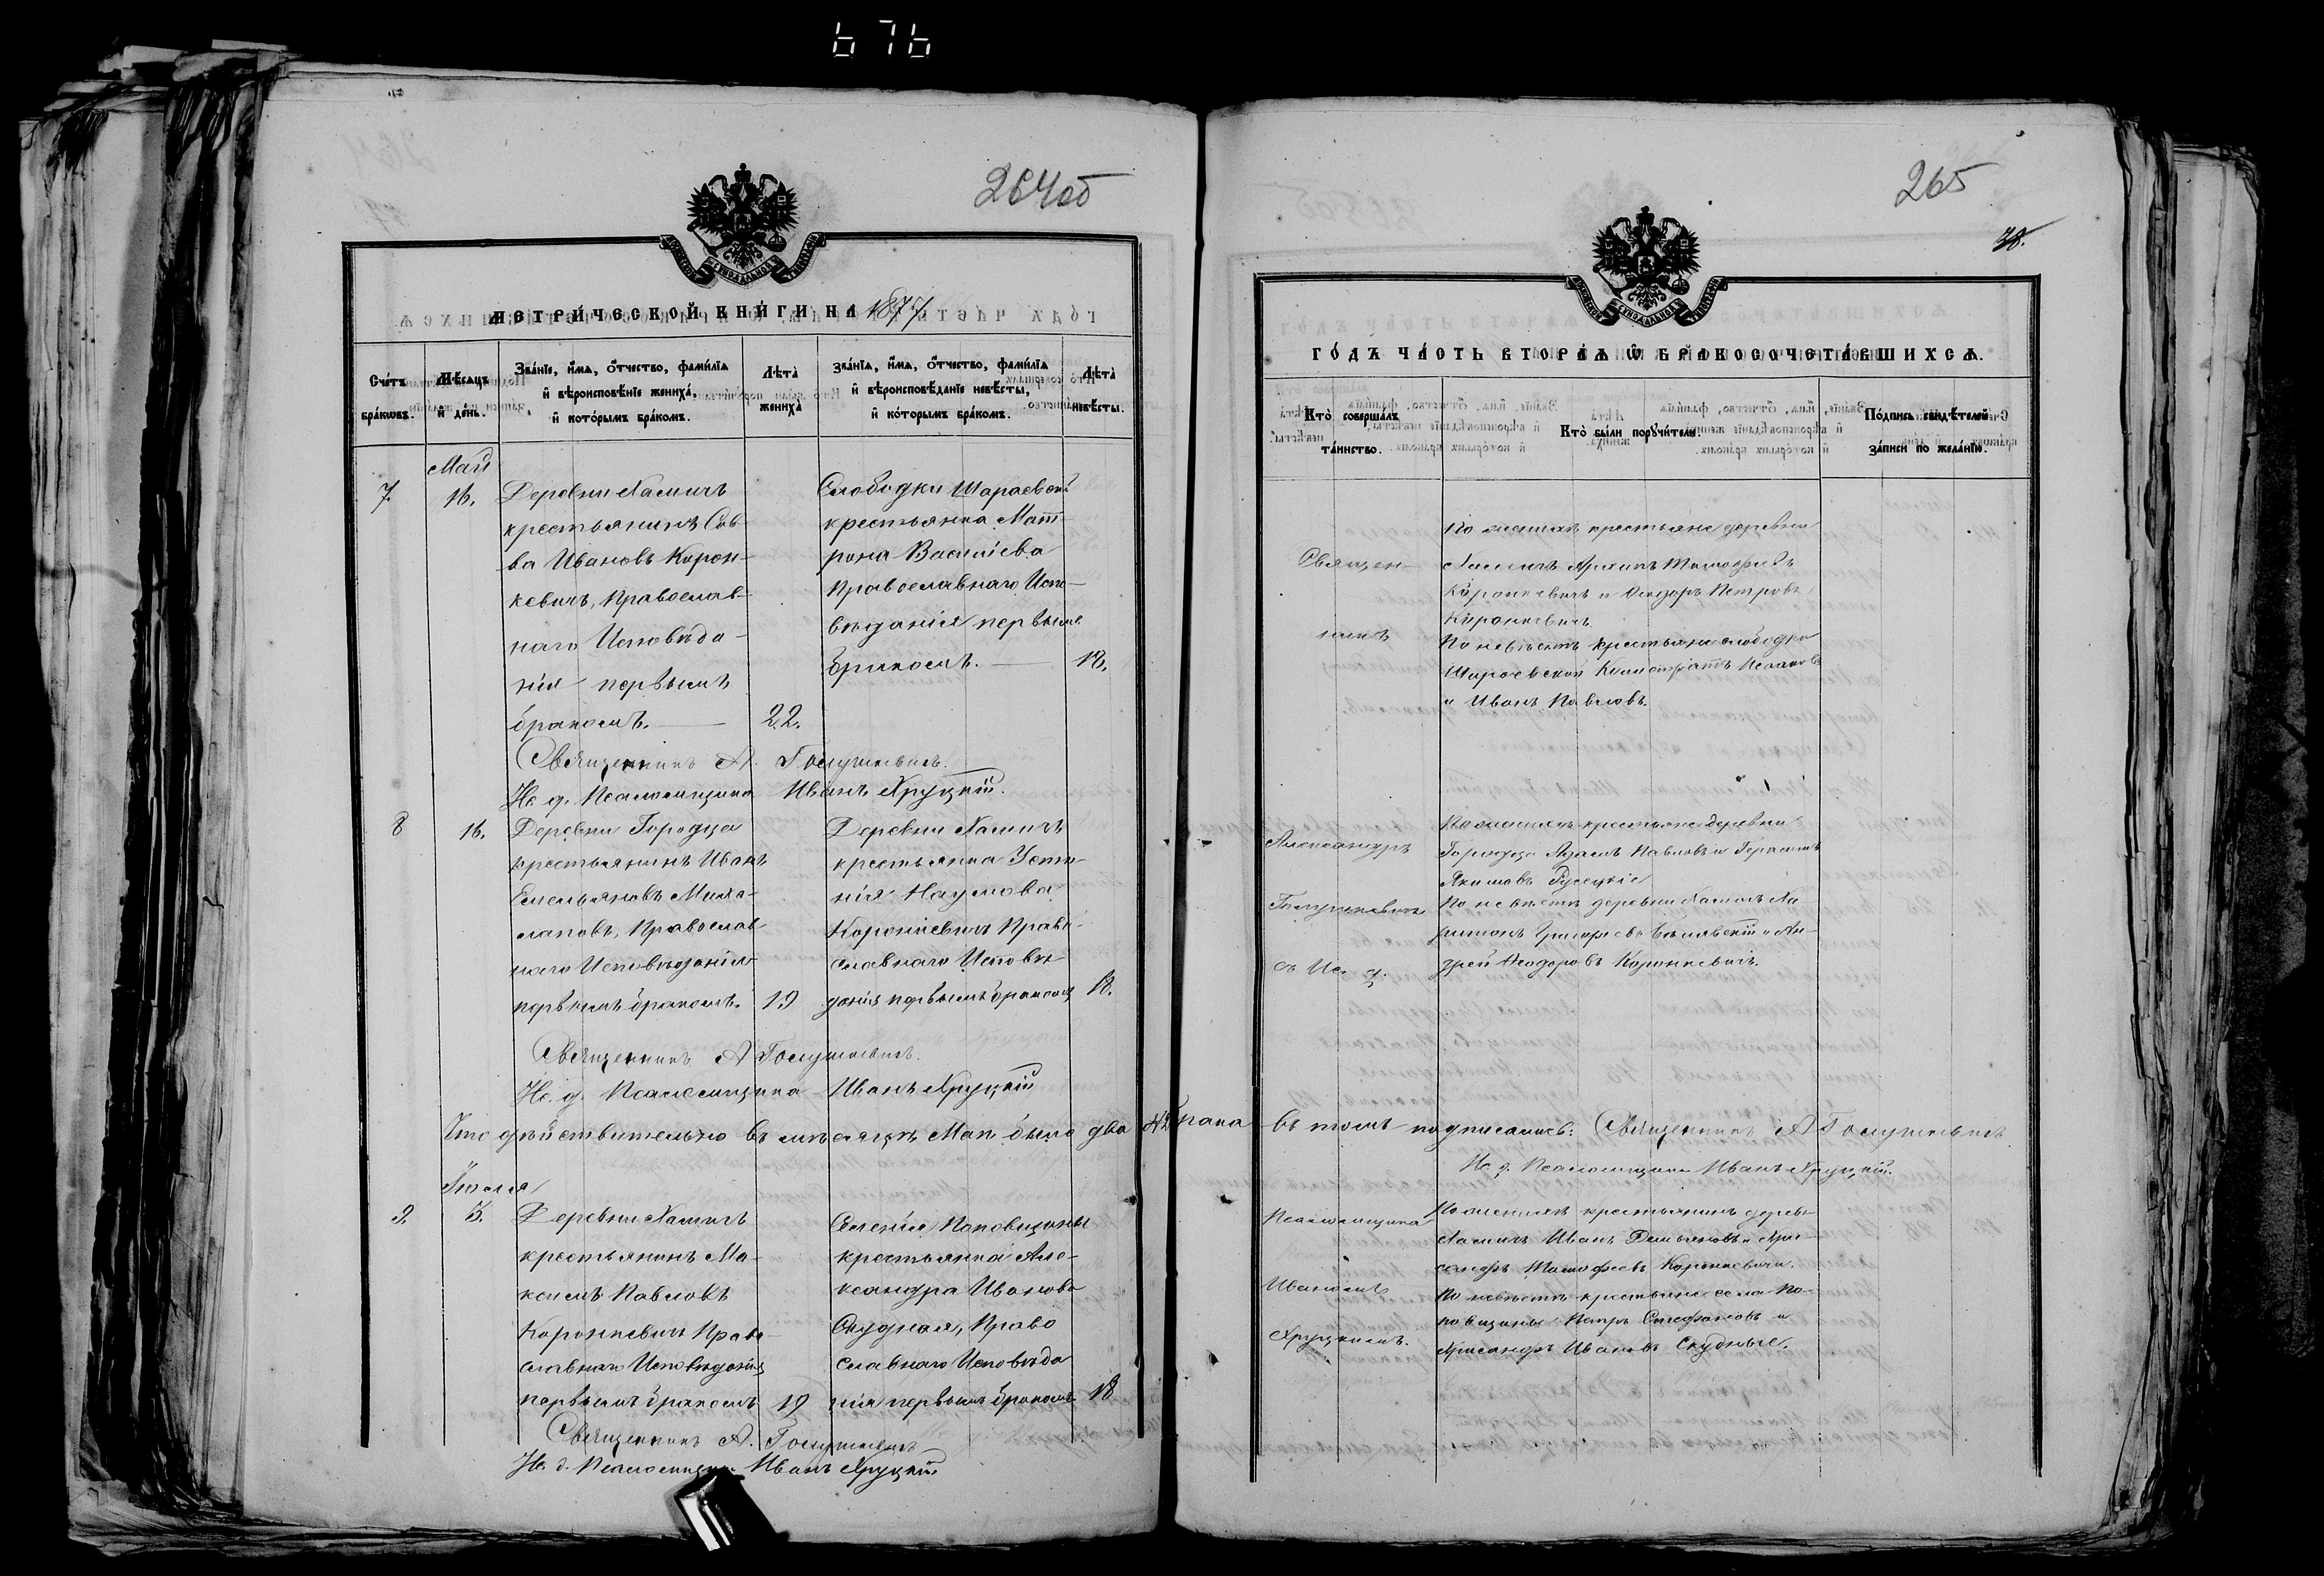 676
264об
МЕТРИ́ЧЕСКОЙ КНИ́ГИ НА 1877
Сче́тъ бра́кωвъ.
Мѣ́сяцъ и҆ де́нь.
Зва́нїе, и҆́мя, ѻ҆́тчество, фами́лїя
и҆ вѣроисповѣ́нїе жениха̀,
и҆ кото́рымъ бра́комъ.
Лѣта̀ жениха̀
Зва́нїя, и҆́мя, ѻ҆́тчество, фами́лїя
и҆ вѣроисповѣ́данїе невѣ́сты,
и҆ кото́рымъ бра́комъ.
Лѣта̀ невѣ́сты.
Май
7.
16.
Деревни Хамичъ
крестьянинъ Сав-
ва Ивановъ Корон-
кевичъ, Православ-
наго Исповѣда-
нія первымъ
бракомъ.
22.
Слободки Шараевской
крестьянка Мат-
рона Васильева
Православнаго Испо-
вѣданія первымъ
бракомъ.
18.
Священникъ А.
Но. д. Псаломщика Иванъ Хруцкій.
8
16.
Деревни Городца
крестьянинъ Иванъ
Емельяновъ
Православ-
наго Исповѣданія
первымъ бракомъ.
19
Деревни Хамичъ
крестьянка Усти-
нія Наумова
Коронкевичъ Право-
славнаго Исповѣ-
данія первымъ бракомъ
18.
Священникъ А
Но. д. Псаломщика Иванъ Хруцкій
Что дѣйствительно въ мѣсяцѣ Маѣ было два брака въ томъ подписались: Священникъ А
Но. д. Псаломщика Иванъ Хруцкій.
Іюля
9.
3.
Деревни Хамичъ
крестьянинъ Ма-
ксимъ Павловъ
Коронкевичъ Право-
славнаго Исповѣданія
первымъ бракомъ
19
Селенія Поповщины
крестьянка Але-
ксандра Иванова
Скудная, Право
славнаго Исповѣда
нія первымъ бракомъ
18
Священникъ А.
Но. д. Псаломщика Иванъ Хруцкій
265
38.
ГО́ДЪ ЧА́СТЬ ВТОРА́Я Ѽ БРАКОСОЧЕТА́ВШИХСЯ.
Кто̀ соверша́лъ
та́инство.
Кто̀ бы́ли порꙋчи́тели.
По́дпись свидѣ́телей
за́писи по жела́нїю.
Священ-
никъ
Александръ
съ Но. д.
Псаломщика
Иваномъ
Хруцкимъ.
По женихѣ крестьяне деревни
Хамичъ Архипъ Тимофеевъ
Коронкевичъ и Федоръ Петровъ
Коронкевичъ
По невѣстѣ крестьяне слободки
Шараевской
и Иванъ Павловъ.
По женихѣ крестьяне деревни
Городца Адамъ Павловъ и Герасимъ
Якимовъ Русецкіе
По невѣстѣ деревни Хамичъ Ха
ритонъ Григорьевъ и Ан-
дрей Феодоровъ Коронкевичъ.
По женихѣ крестьянинъ дерев-
Хамичъ Иванъ Демьяновъ и
Тимофеевъ Коронкевичи.
По невѣстѣ крестьяне села По-
повщины Петръ Стефановъ и
Ивановъ Скудные.